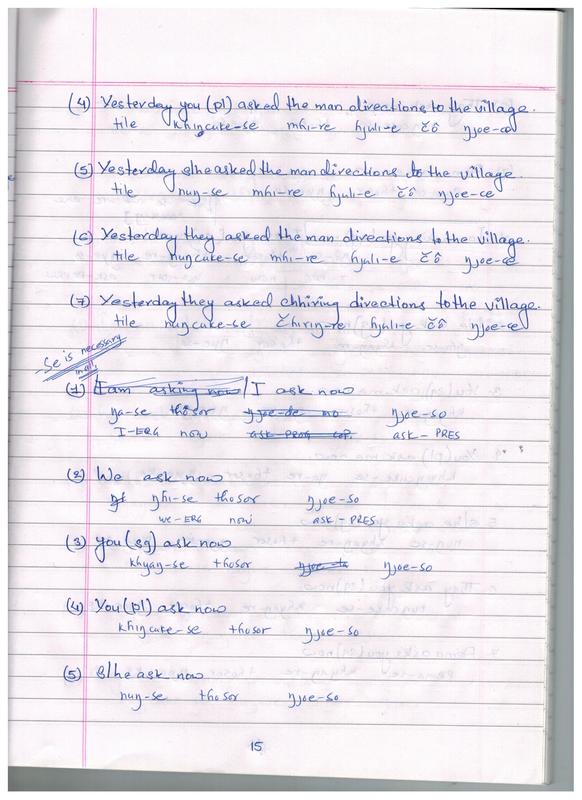 (4) Yesterday you (pl) asked the man directions to the village.
tile khiŋcuke-se mhi-re ɦjuli-e čô ŋjoe-ce
(5) Yesterday s/he asked the man directions to the village.
tile nuŋ-se mhi-re ɦjuli-e čô ŋjoe-ce
(6) Yesterday they asked the man directions to the village.
tile nuŋcuke-se mhi-re ɦjuli-e čô ŋjoe-ce
(7) Yesterday they asked chhiring directions to the village.
tile nuŋcuke-se čhiriŋ-re ɦjuli-e čô ŋjoe-ce
Se is necessary
in all
(1) I am asking now / I ask now
ŋa-se thosor ŋjoe-de mo ŋjoe-so
I-ERG now ask PROG COP. ask-PRES
(2) We ask now
ŋhi-se thosor ŋjoe-so
we-ERG now ask-PRES
(3) You (sg) ask now
khyaŋ-se thosor ŋjoe-so
(4) You (pl) ask now
khiŋcuke-se thosor ŋjoe-so
(5) s/he ask now
nuŋ-se thosor ŋjoe-so
15